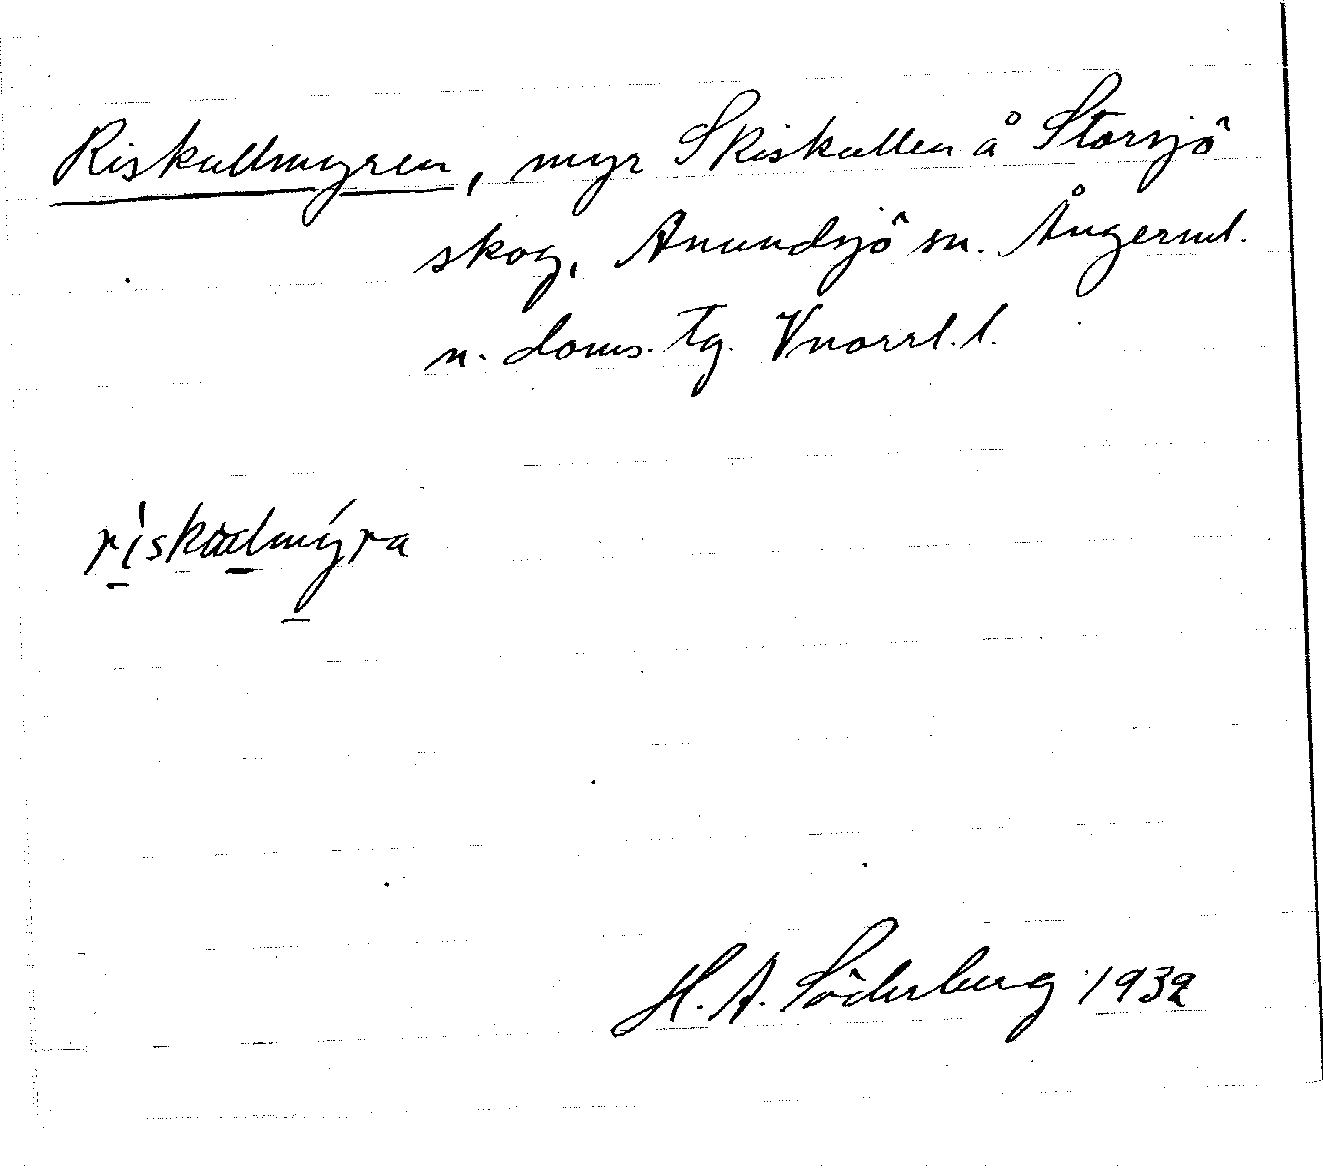 Riskullmyren, myr SRiskullen å Storsjö
skog, Anundsjö sn. Ångerml.
n. doms. tg. Vnorrl. l.
H. A. Söderberg 1932